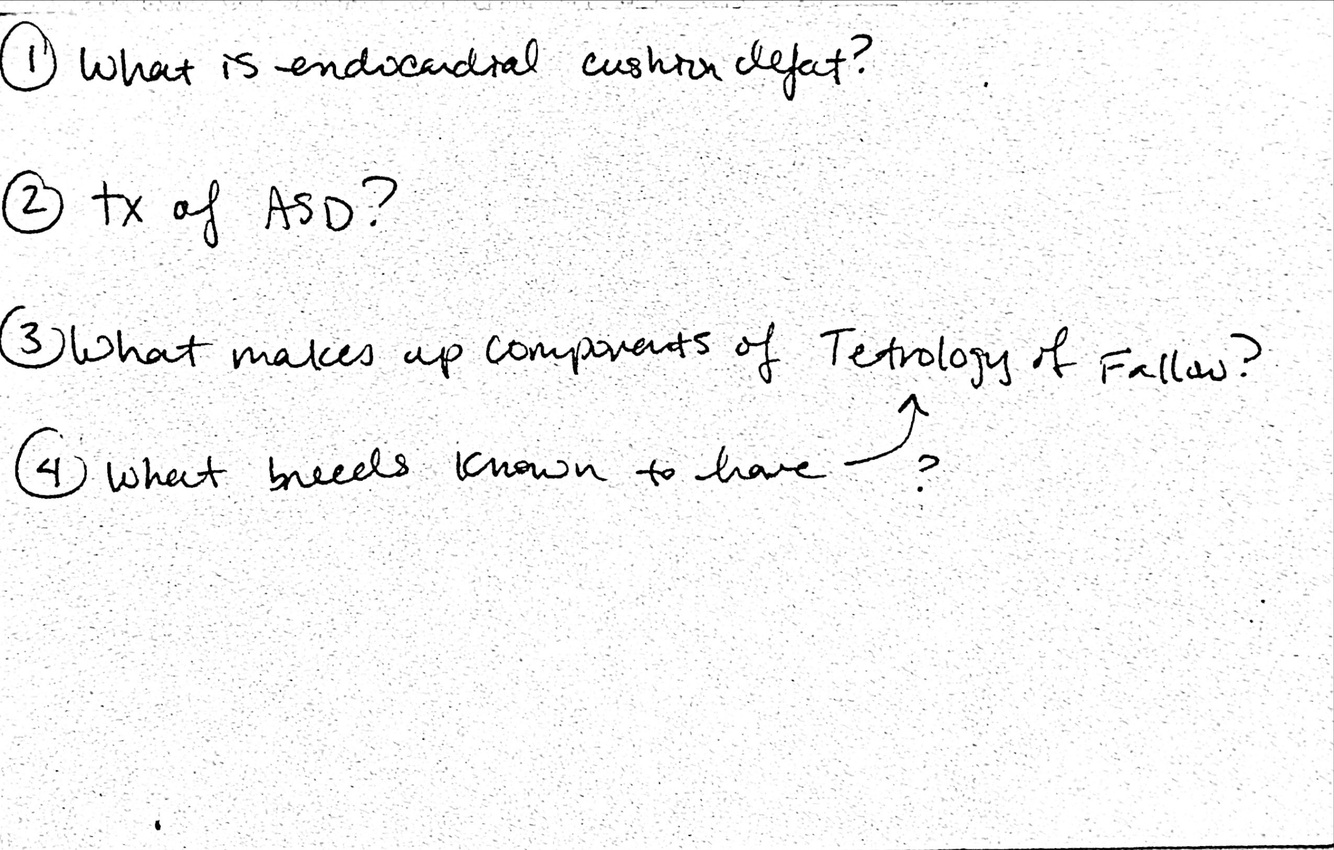 ① What is endocardial cushion defect?
② tx of ASD?
③ What makes up components of Tetrology of Fallow?
④ What breeds known to have ↗?